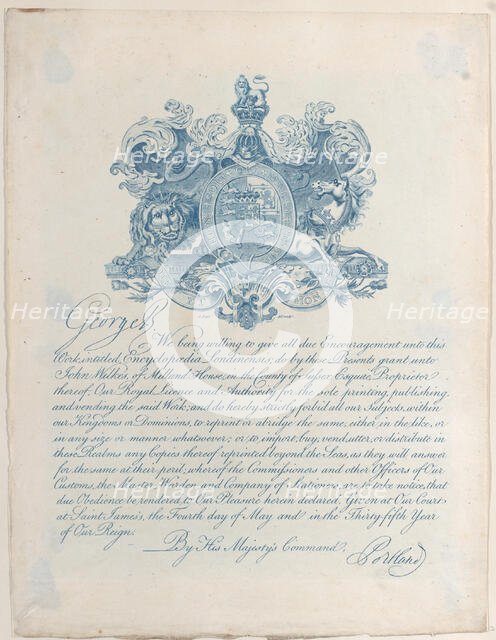 George R
We being willing to give all due Encouragement unto this
Work, intitled, Encyclopædia Londinensis, do by these Presents grant unto
John Wilkes, of Milland House, in the County of Sussex, Esquire, Proprietor
thereof, Our Royal Licence and Authority for the sole printing, publishing,
and vending the said Work; and do hereby strictly forbid all our Subjects, within
our Kingdoms or Dominions, to reprint or abridge the same, either in the like, or
in any size or manner whatsoever; or to import, buy, vend, utter, or distribute in
these Realms any Copies thereof reprinted beyond the Seas, as they will answer
for the same at their peril; whereof the Commissioners and other Officers of Our
Customs, the Master, Warden and Company of Stationers, are to take notice, that
due Obedience be rendered to Our Pleasure herein declared, Given at Our Court
at Saint James's, the Fourth day of May and in the Thirty-fifth Year
of Our Reign.
By His Majesty's Command.
Portland
Heritage Heritage Heritage
Heritage Heritage Heritage
Heritage Heritage Heritage
Heritage Heritage Heritage